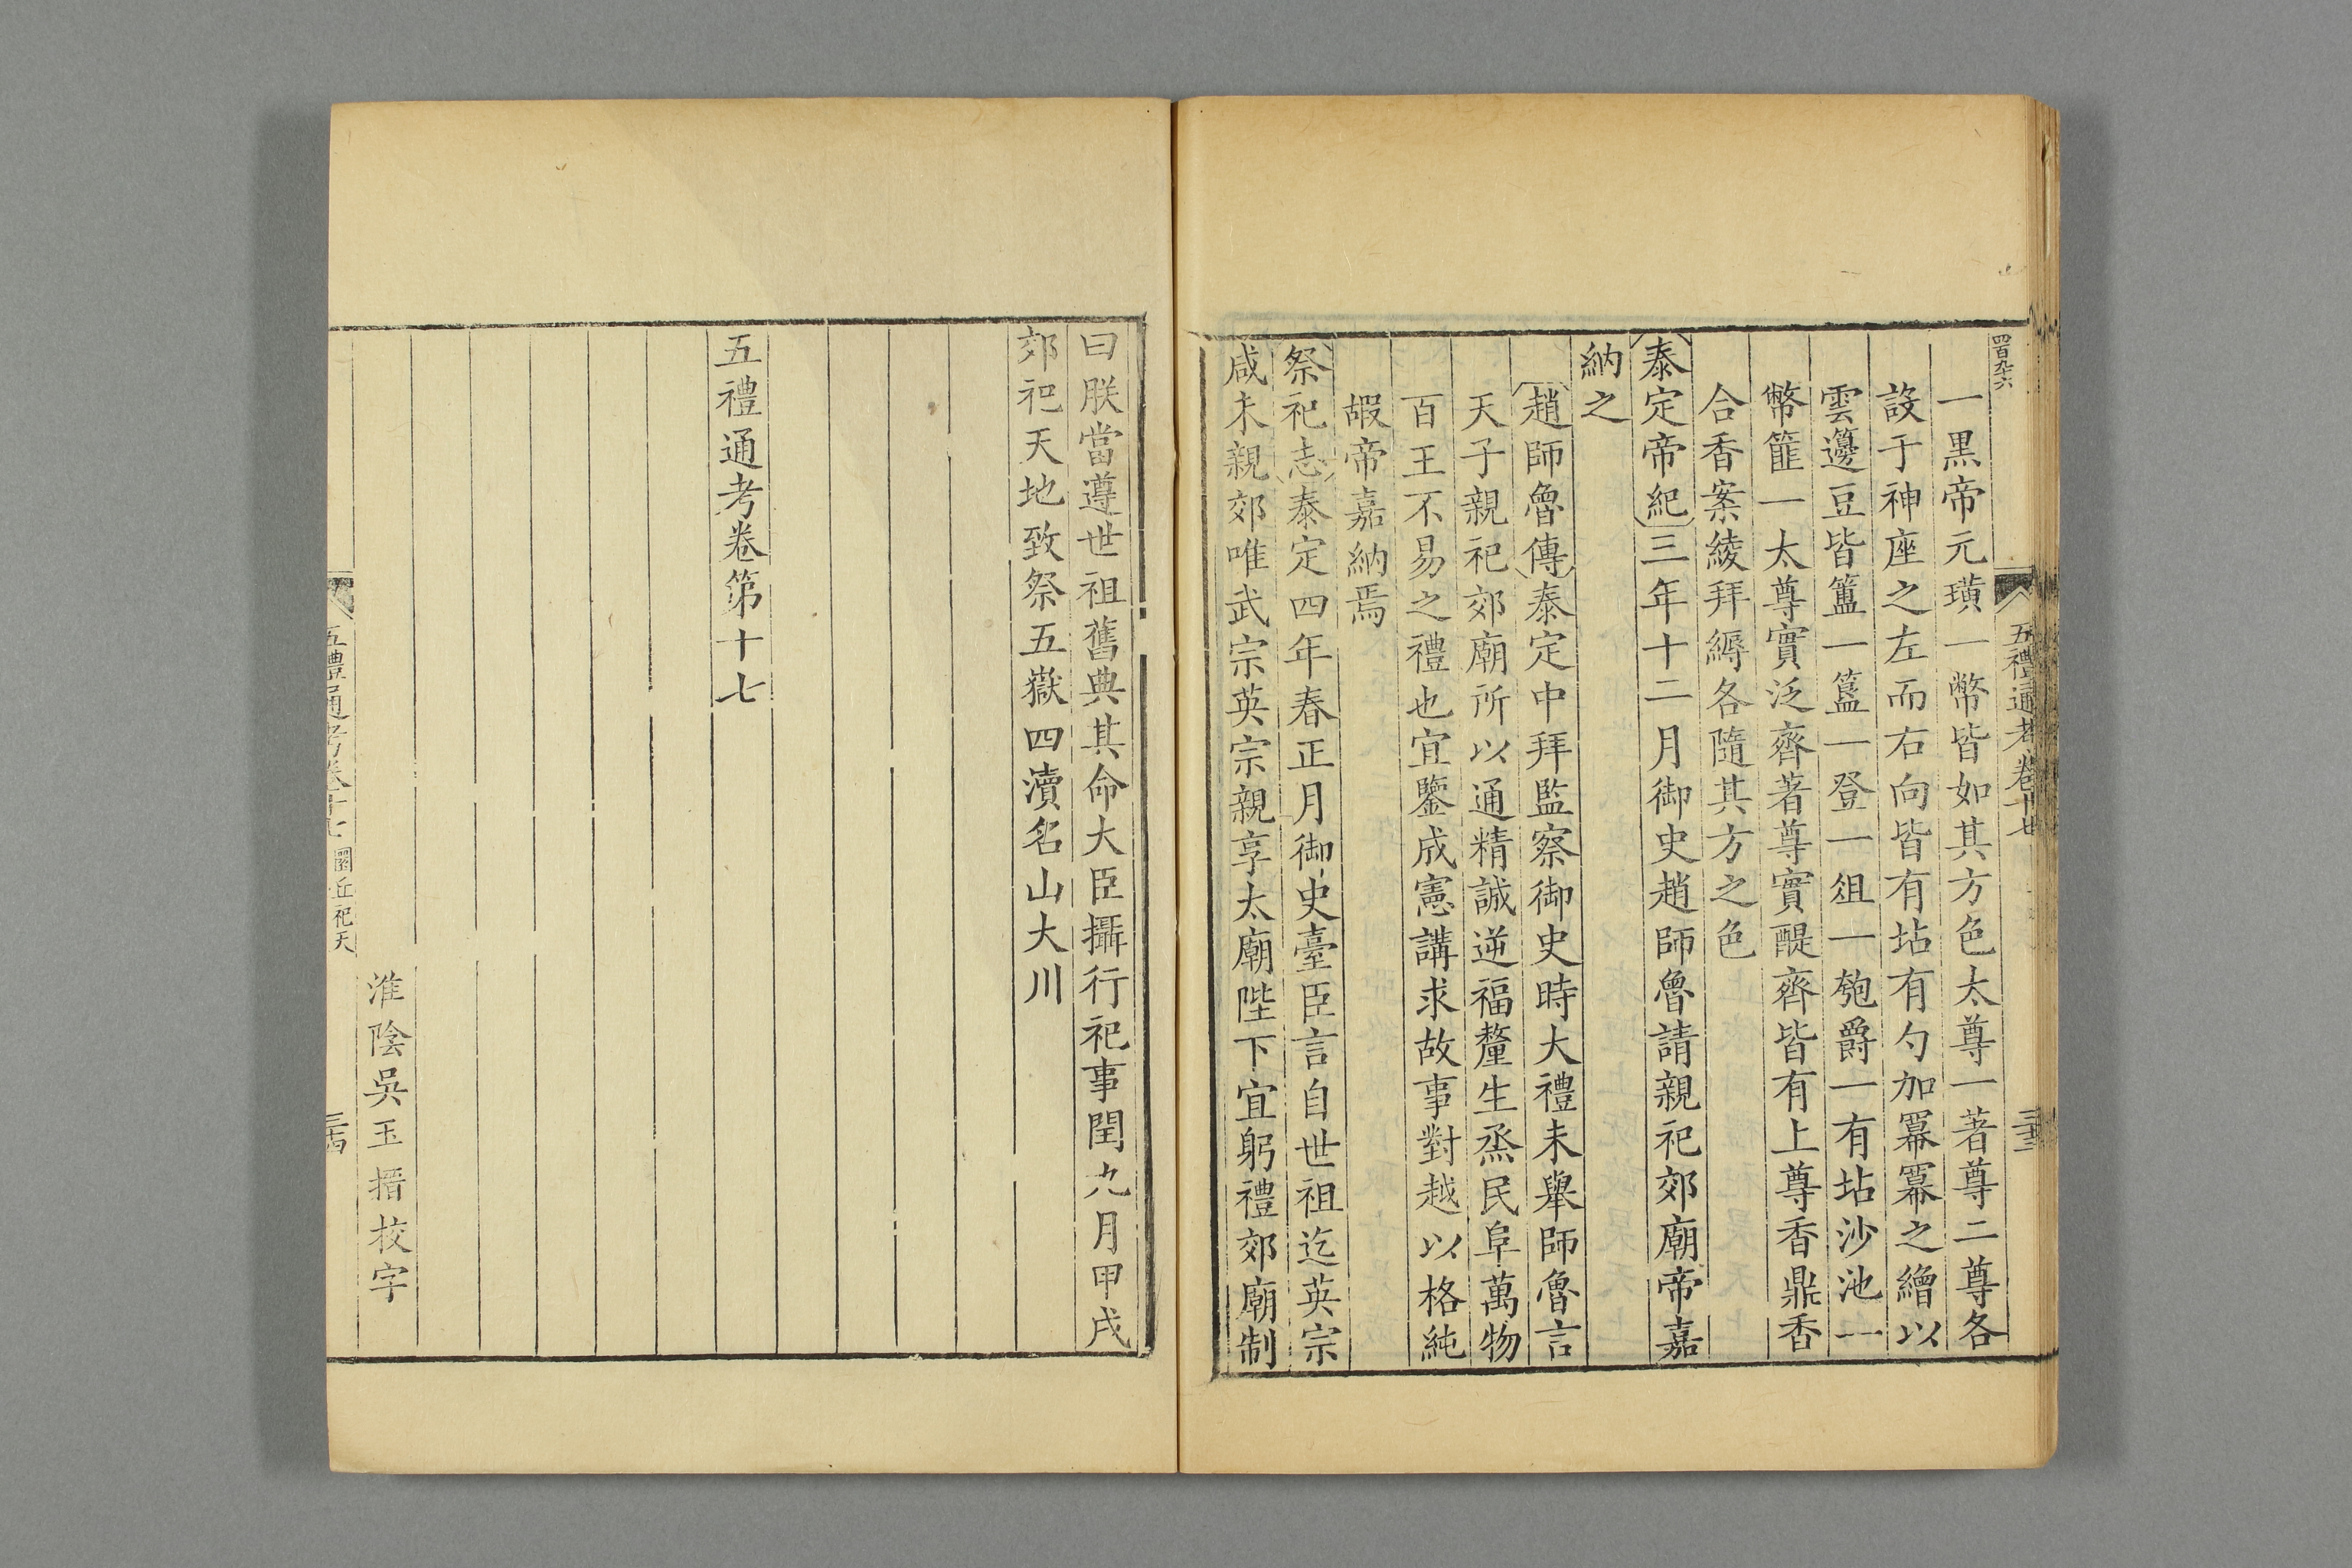 四百九十六
五禮通考卷十七
三十三
一黑帝元璜一幣皆如其方色太尊一著尊二尊各
設于神座之左而右向皆有坫有勺加冪冪之繪以
雲籩豆皆簠一簋一登一俎一匏爵一有坫沙池一
幣篚一太尊實泛齊著尊實醍齊皆有上尊香鼎香
合香案綾拜縟各隨其方之色
泰定帝紀三年十二月御史趙師魯請親祀郊廟帝嘉
納之
趙師魯傳泰定中拜監察御史時大禮未舉師魯言
天子親祀郊廟所以通精誠逆福釐生烝民阜萬物
百王不易之禮也宜鑒成憲講求故事對越以格純
嘏帝嘉納焉
祭祀志泰定四年春正月御史臺臣言自世祖迄英宗
咸未親郊唯武宗英宗親享太廟陛下宜躬禮郊廟制
曰朕當遵世祖舊典其命大臣攝行祀事閏九月甲戌
郊祀天地致祭五嶽四瀆名山大川
五禮通考卷第十七
淮陰吳玉搢校字
五禮通考卷十七 圜丘祀天
三十四